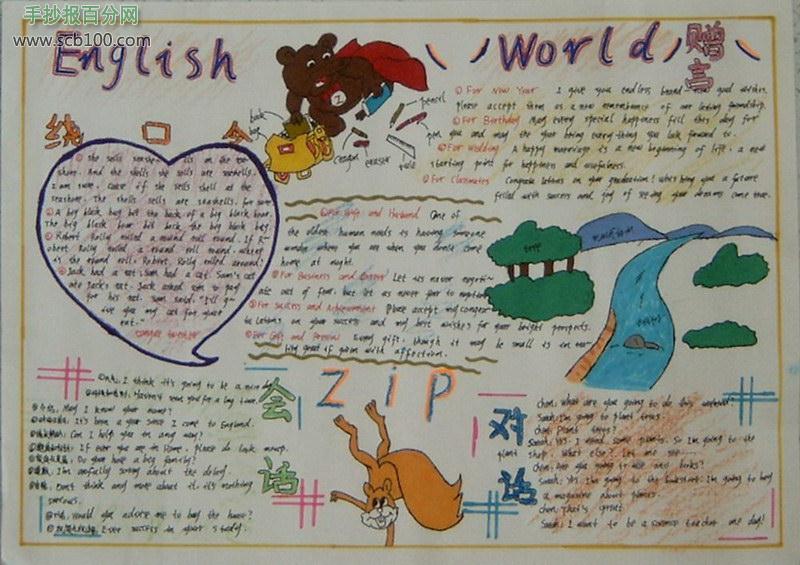 手抄报百分网
www.scb100.com
English World
赠言
绕口令
book
bag
pencil
pen
crayon
eraser
rule
① For New Year I give you endless brand new good wishes.
Please accept them as a new remembrance of our lasting friendship.
② For Birthday May every special happiness fill this day for
you and may the year bring everything you look forward to.
③ For Wedding A happy marriage is a new beginning of life, a new
starting point for happiness and usefulness.
④ For Classmates Congratulations on your graduation! wishing you a future
filled with success and joy of seeing your dreams come true.
① She sells seashells on the seashore.
And the shells she sells are seashells,
I am sure, cause if she sells shell at the
seashore. The shells sells are seashells, for sure
② A big black bug bit the back of a big black bear.
The big black bear bit back the big black bug
③ Robert Rolly rolled a round roll round. If R-
obert Rolly rolled a round roll round. where
is the round roll, Robert Rolly rolled around?
④ Jack had a cat. Sam had a cat. Sam's cat
ate Jack's cat. Jack asked Sam to pay
for his cat. Sam said, "I'll g-
ive you my cat for your
cat."
tongue twister
For Wife and Husband One of
the oldest human needs is having someone
wonder where you are when you don't come
home at night.
For Business and Career Let us never negoti-
ate out of fear, but let us never fear to negotiate
For Success and Achievement Please accept my congra-
tulations on your success and my best wishes for your bright prospects.
For Gift and Personal Every gift, though it may be small is in rea-
lity great if given with affection.
tree
mountain
water
Zip
会话
对话
I think it's going to be a nice
Haven't seen you for a long time.
介绍: May I know your name?
It's been a year since I came to England.
Can I help you in any way?
If ever you are in Rome, please do look me up.
Do your have a big family?
道歉: I'm awfully sorry about the delay.
Don't think any more about it. it's nothing
serious.
Would you advise me to buy the house?
I see success in your study.
chen: what are you going to do this weekend
Sarah: I'm going to plant trees.
chen: Plant trees?
Sarah: Yes. I need some plants. So I'm going to the
plant shop. What else? Let me see...
chen: Are you going to use any books?
Sarah: Yes. I'm going to the bookstore. I'm going to buy
a magazine about plants.
chen: that's great
Sarah: I want to be a science teacher one day!